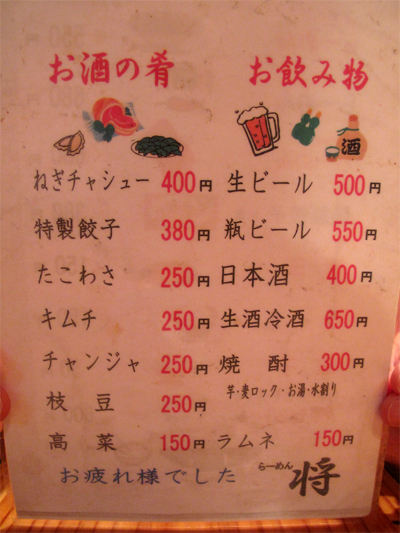 お酒の肴
ねぎチャシュー 400円
特製餃子 380円
たこわさ 250円
キムチ 250円
チャンジャ 250円
枝豆 250円
高菜 150円
お飲み物
酒
生ビール 500円
瓶ビール 550円
日本酒 400円
生酒冷酒 650円
焼酎 300円
芋・麦ロック・お湯・水割り
ラムネ 150円
お疲れ様でした
らーめん 将